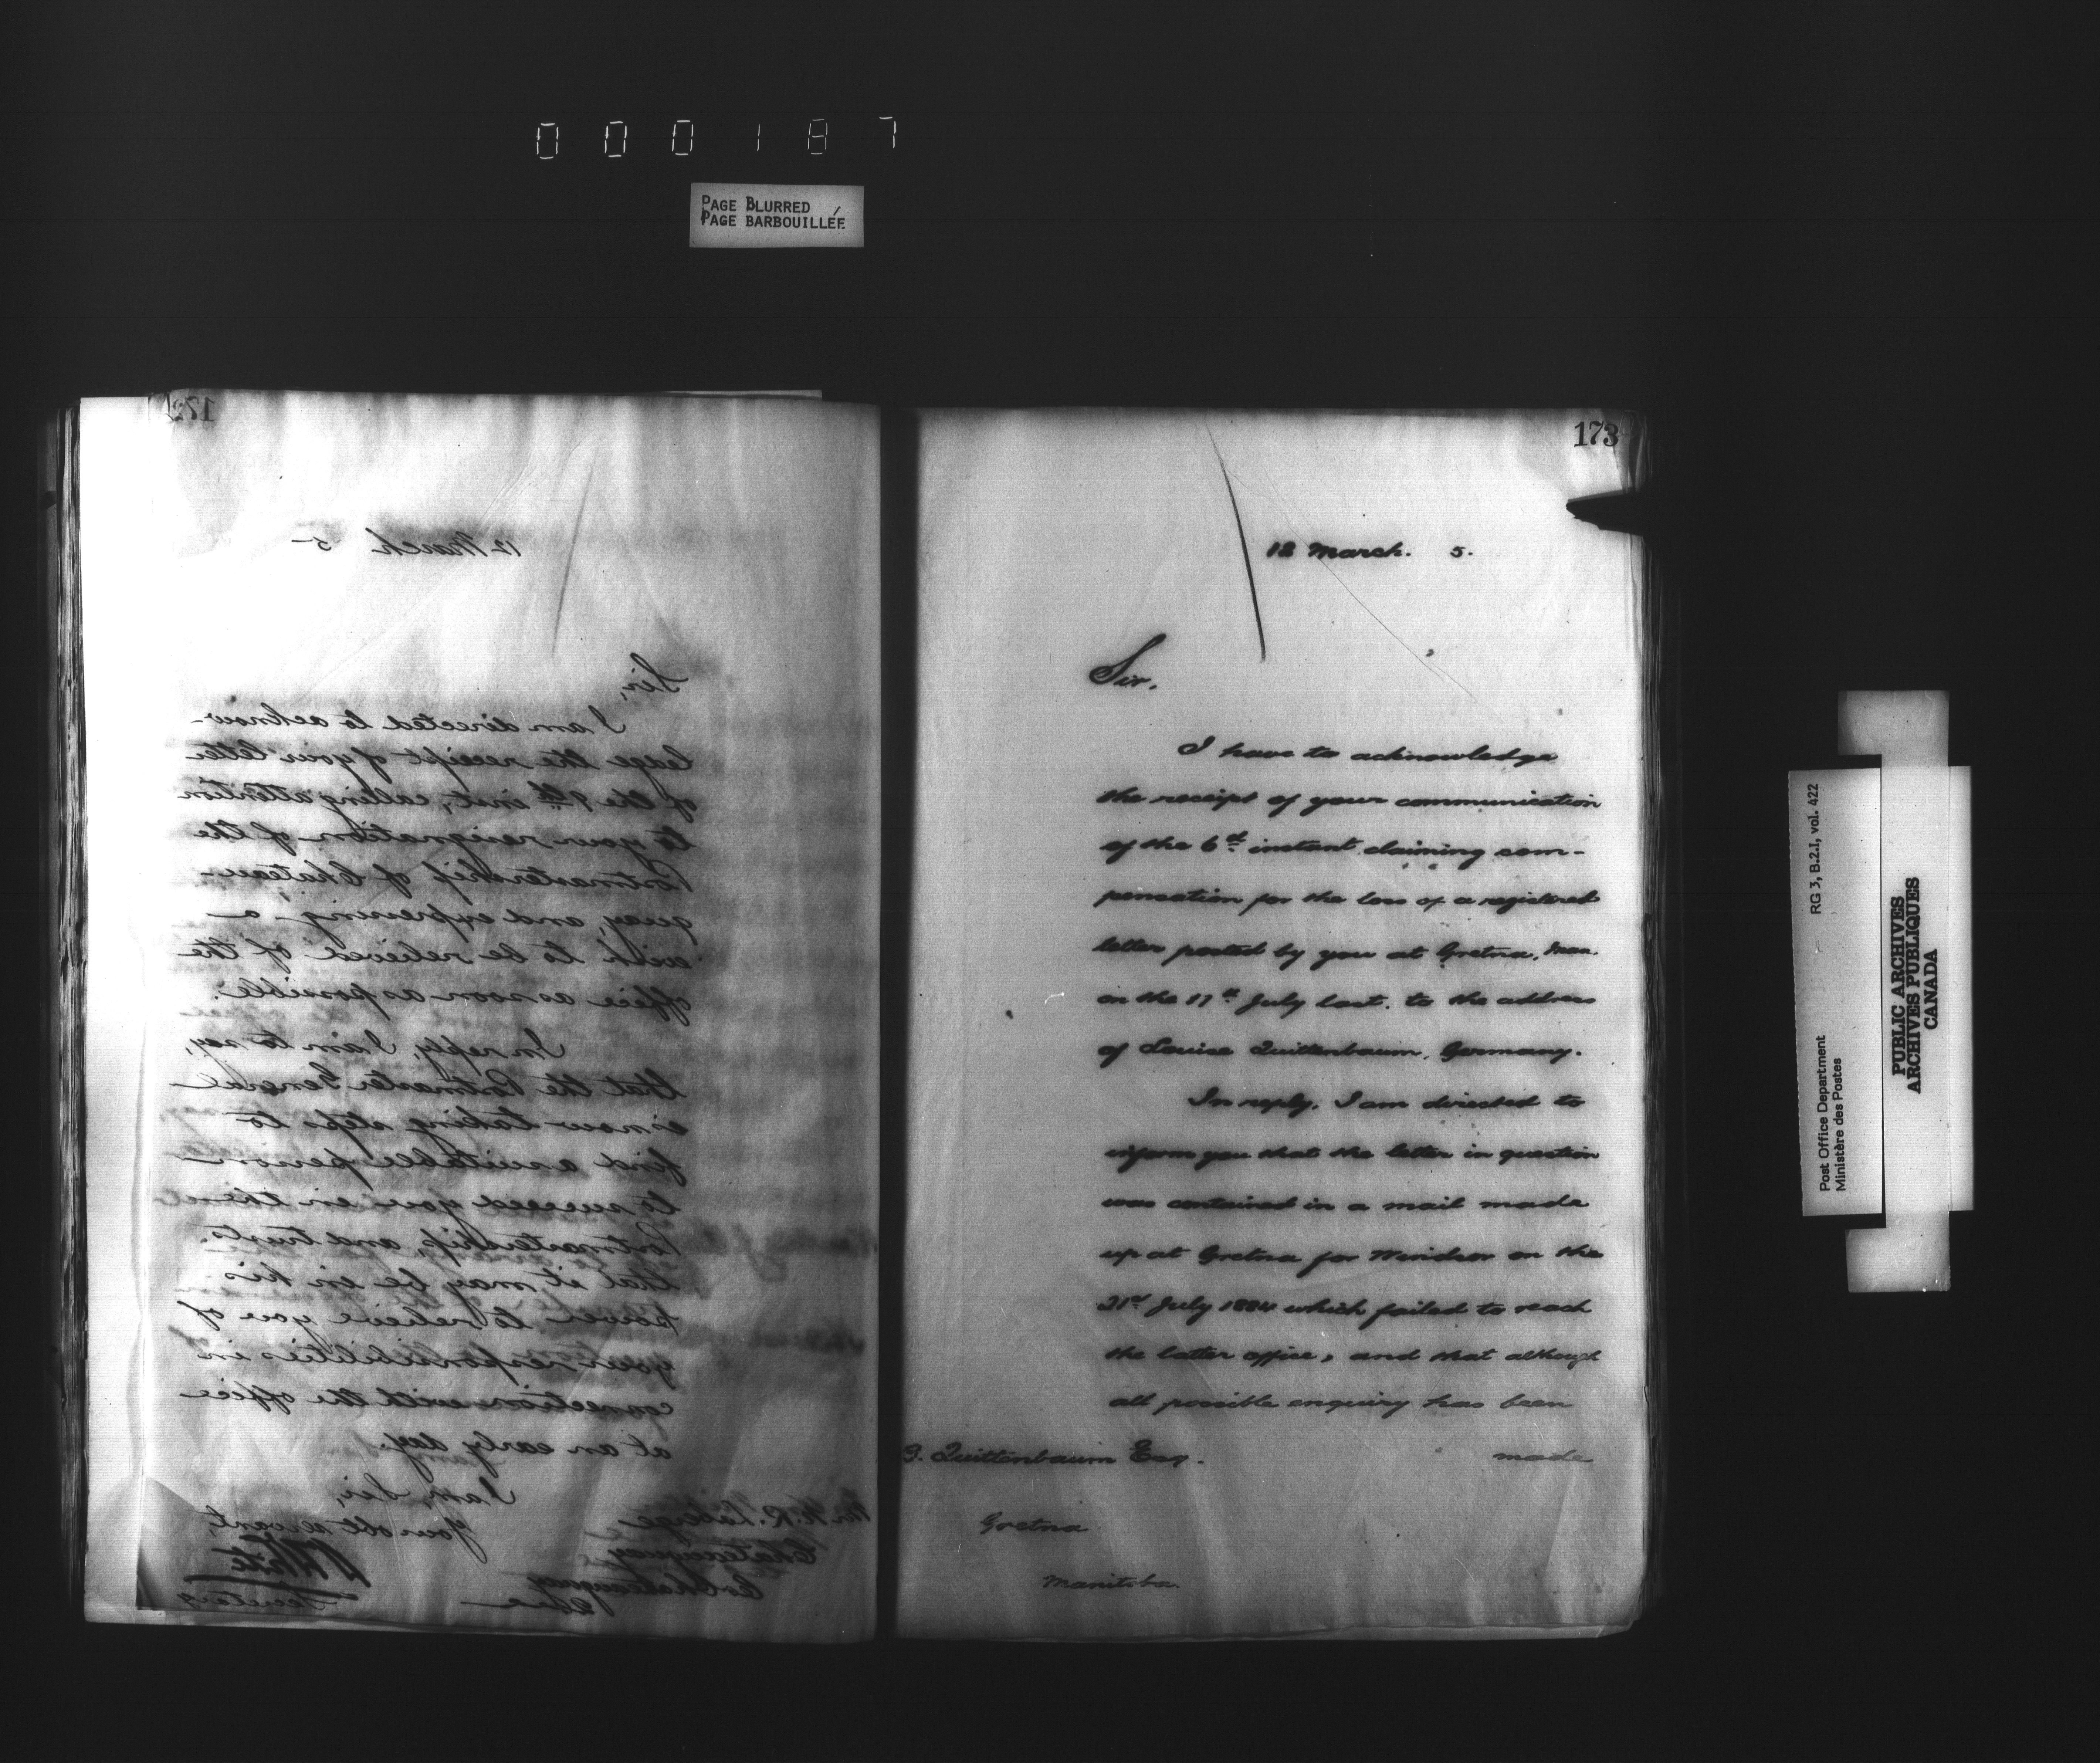 000187
PAGE BLURRED
PAGE BARBOUILLÉE
172
12 March 5
Sir,
I am directed to acknow-
ledge the receipt of your letter
of the 9th inst., calling attention
to your resignation of the
Postmastership of Chateau-
guay, and expressing a
wish to be relieved of the
office as soon as possible.
In reply, I am to say,
that the Postmaster General
is now taking steps to
find a suitable person
to succeed you in the
Postmastership, and trusts
that it may be in his
power to relieve you of
your responsibilities in
connection with the office
at an early day.
I am, Sir,
Your obt servant,
Secretary
Mr N. R. Laberge
Chateauguay
Co Chateauguay
Que
173
12 March. 5.
Sir.
I have to acknowledge
the receipt of your communication
of the 6th instant claiming com-
pensation for the loss of a registered
letter posted by you at Gretna, Man.
on the 17th July last. to the address
of Louise Quittenbaum, Germany.
In reply, I am directed to
inform you that the letter in question
was contained in a mail made
up at Gretna for Windsor on the
21st July 1884 which failed to reach
the latter office, and that although
all possible enquiry has been
made
Quittenbaum Esq.
Gretna
Manitoba.
Post Office Department
Ministère des Postes
RG 3, B.2.I, vol. 422
PUBLIC ARCHIVES
ARCHIVES PUBLIQUES
CANADA